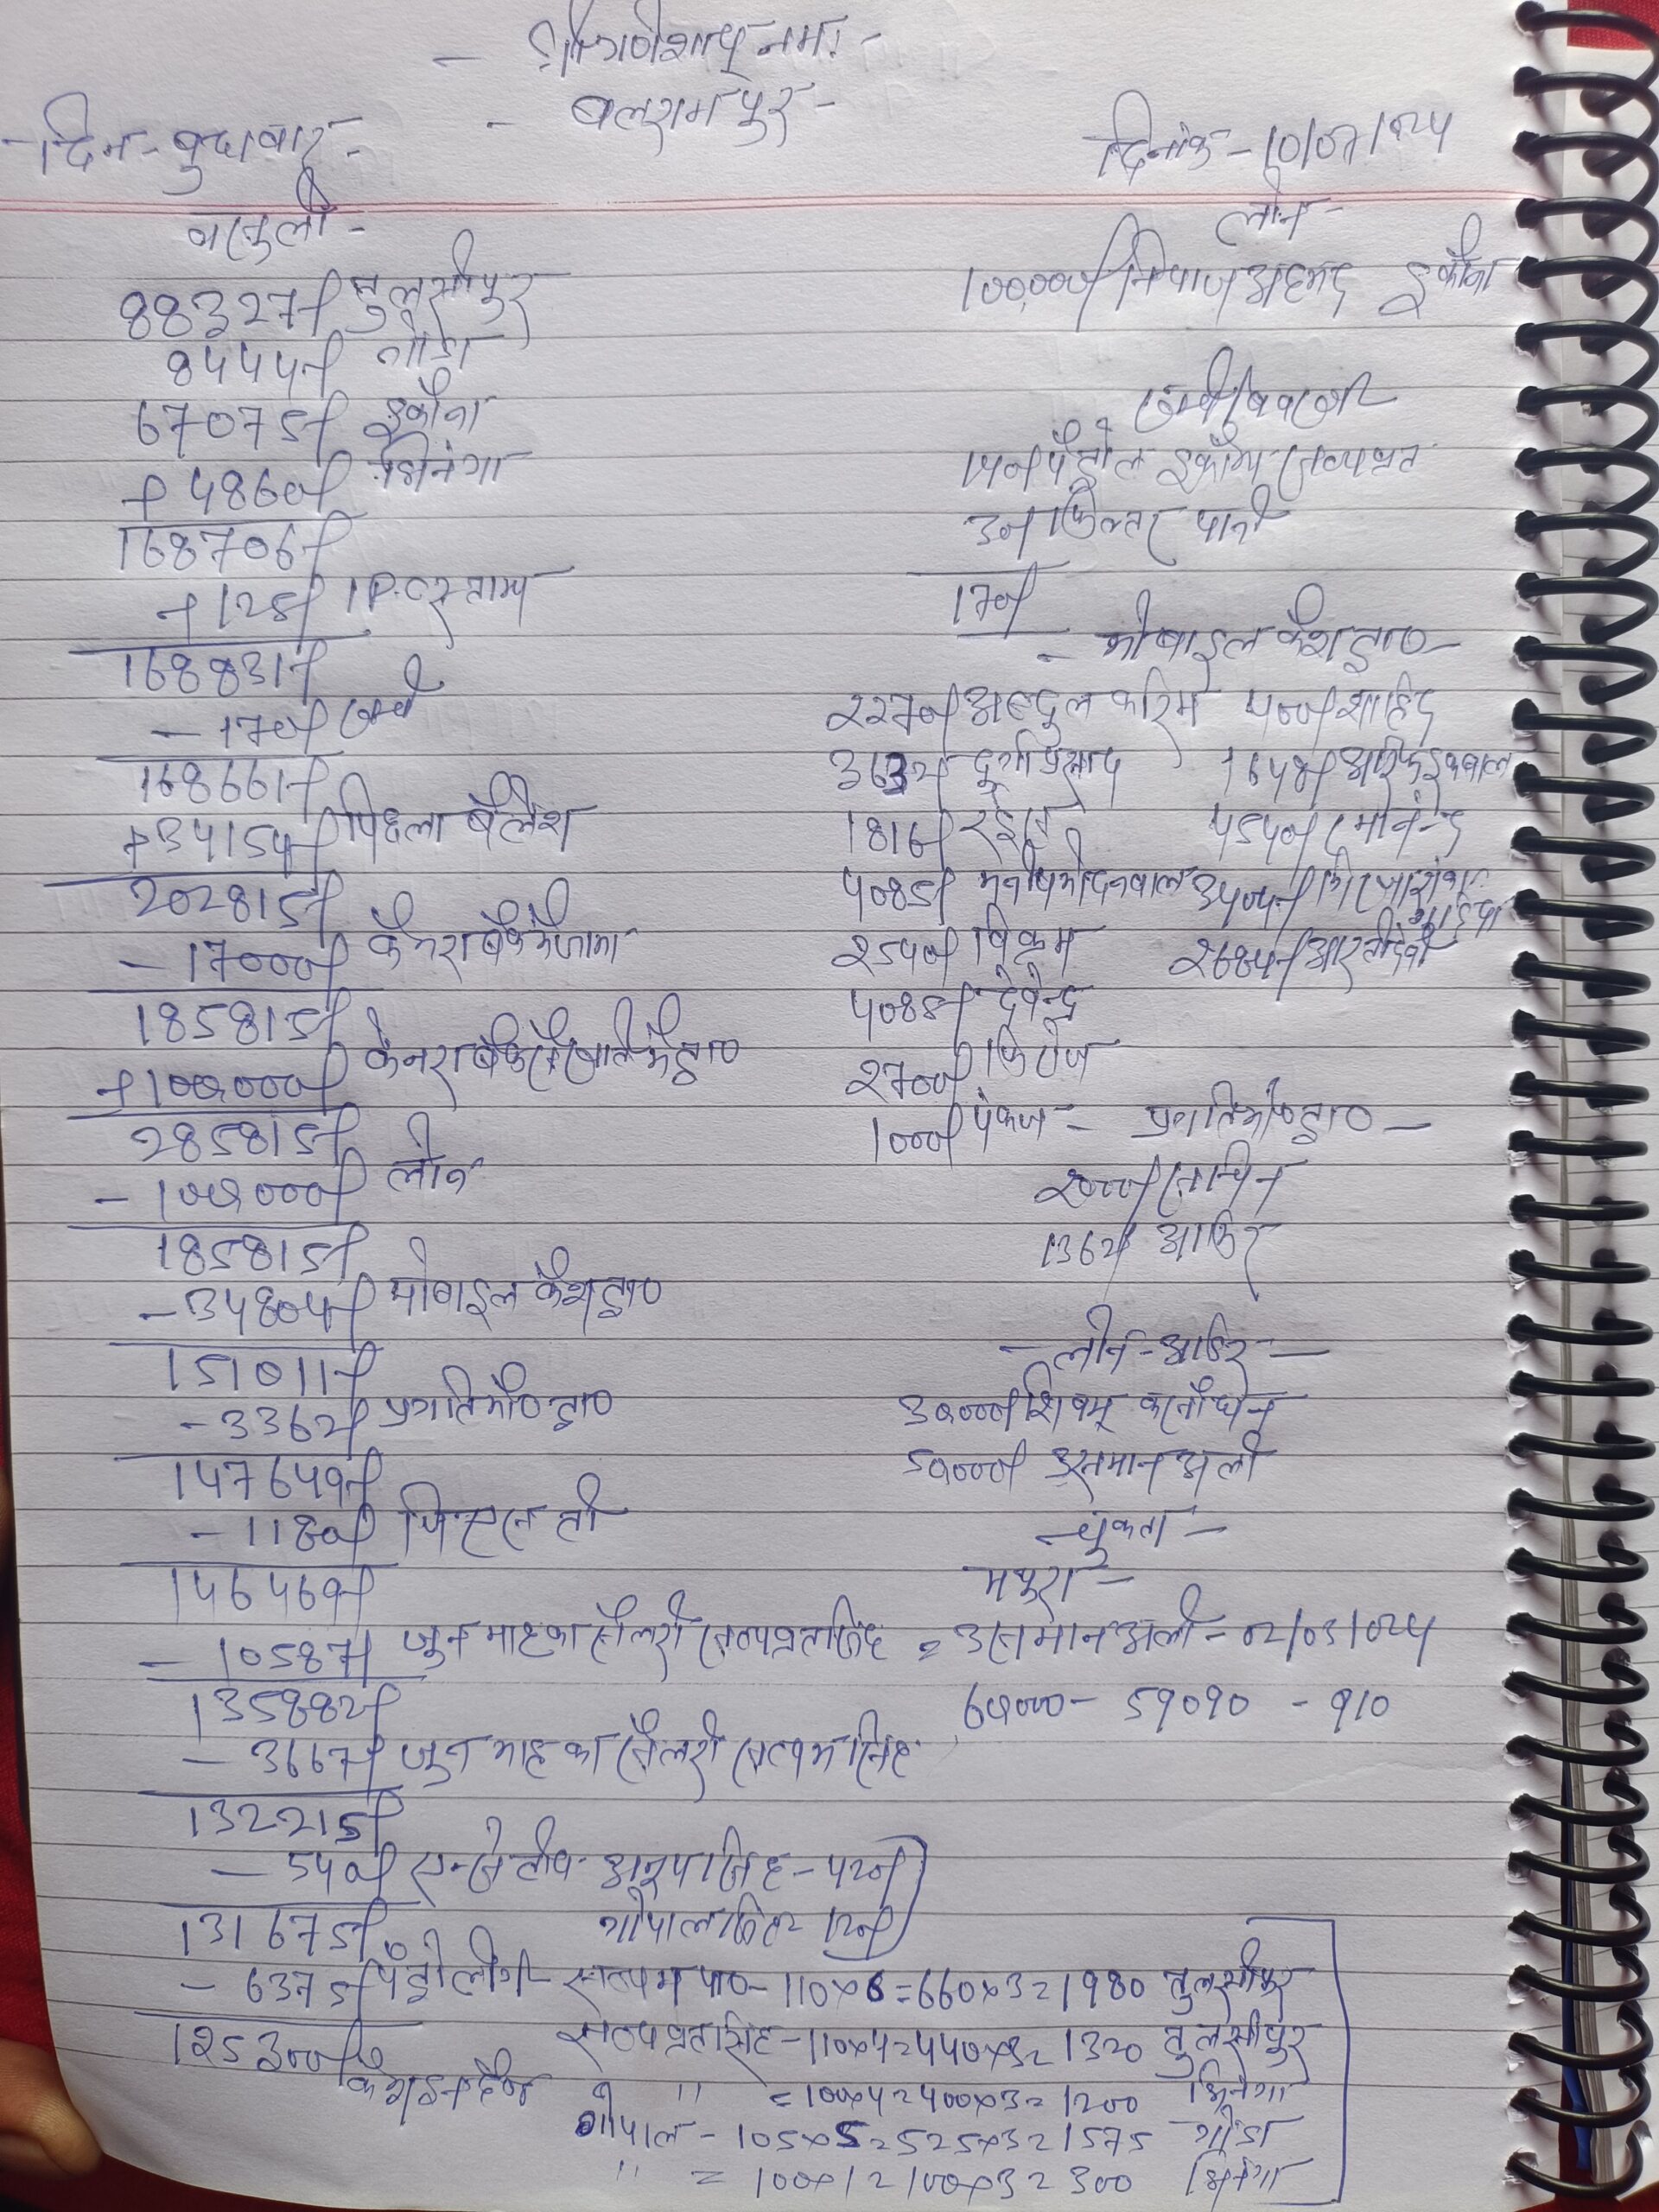 - श्री गणेशाय् नमः -
- बलरामपुर -
- दिन - बुधवार -
दिनांक - 10/07/024
वसुली -
88327/ तुलसीपुर
8444/ गोंडा
67075/ इकौना
+ 4860/ भिनंगा
168706/
+ 125/ 1P.C स्टाम्प
168831/
- 170/ खर्च
168661/
+ 34154/ पिछला बैलेंश
202815/
- 17000/ कैनरा बैंक में जमा
185815/
+ 100,000/ केनरा बैंक से खाते में ट्रा०
285815/
- 100,000/ लोन
185815/
- 34804/ मोबाइल कैश ट्रा०
151011/
- 3362/ प्रगति मो० ट्रा०
147649/
- 1180/
146469/
- 10587/ जून माह का सैलरी सत्यव्रत सिंह
135882/
- 3667/ जून माह का सैलरी सत्यम सिंह
132215/
- 540/ इन्सेंटीव अनूप सिंह - 420/
गोपाल सिंह 120/
131675/
- 6375/ पेंट्रोलींग
125300/ कैश इन हैण्ड
लोन -
100,000/ नियाज अहमद इकौना
खर्च विवरण
140/ पेंट्रोल इकौना सत्यव्रत
30/ फिल्टर पानी
170/
- मोबाइल कैश ट्रा० -
2270/ अब्दुल करिम 400/ शाहिद
3632/ दूर्गा प्रसाद 1648/ आरिफ इकबाल
1816/ रईस 4540/
4085/ मनीष मोदनवाल
2540/ विक्रम आरती देवी
4085/ देवेन्द्र
2700/ फिरोज
1000/ पंकज
- प्रगति मो० ट्रा० -
2000/ सचिन
1362/
- लोन - आर्डर -
30,000/ शिवम् कसौंधन
50,000/ उसमान अली
- चुकता -
मथुरा -
= उसमान अली - 02/03/024
60,000 - 59090 - 910
सत्यम पा० - 110×6 = 660×3 = 1980 तुलसीपुर
सत्यव्रत सिंह - 110×4 = 440×3 = 1320 तुलसीपुर
" " = 100×4 = 400×3 = 1200 भिनंगा
गोपाल - 105×5 = 525×3 = 1575 गोंडा
" = 100×1 = 100×3 = 300 भिनंगा